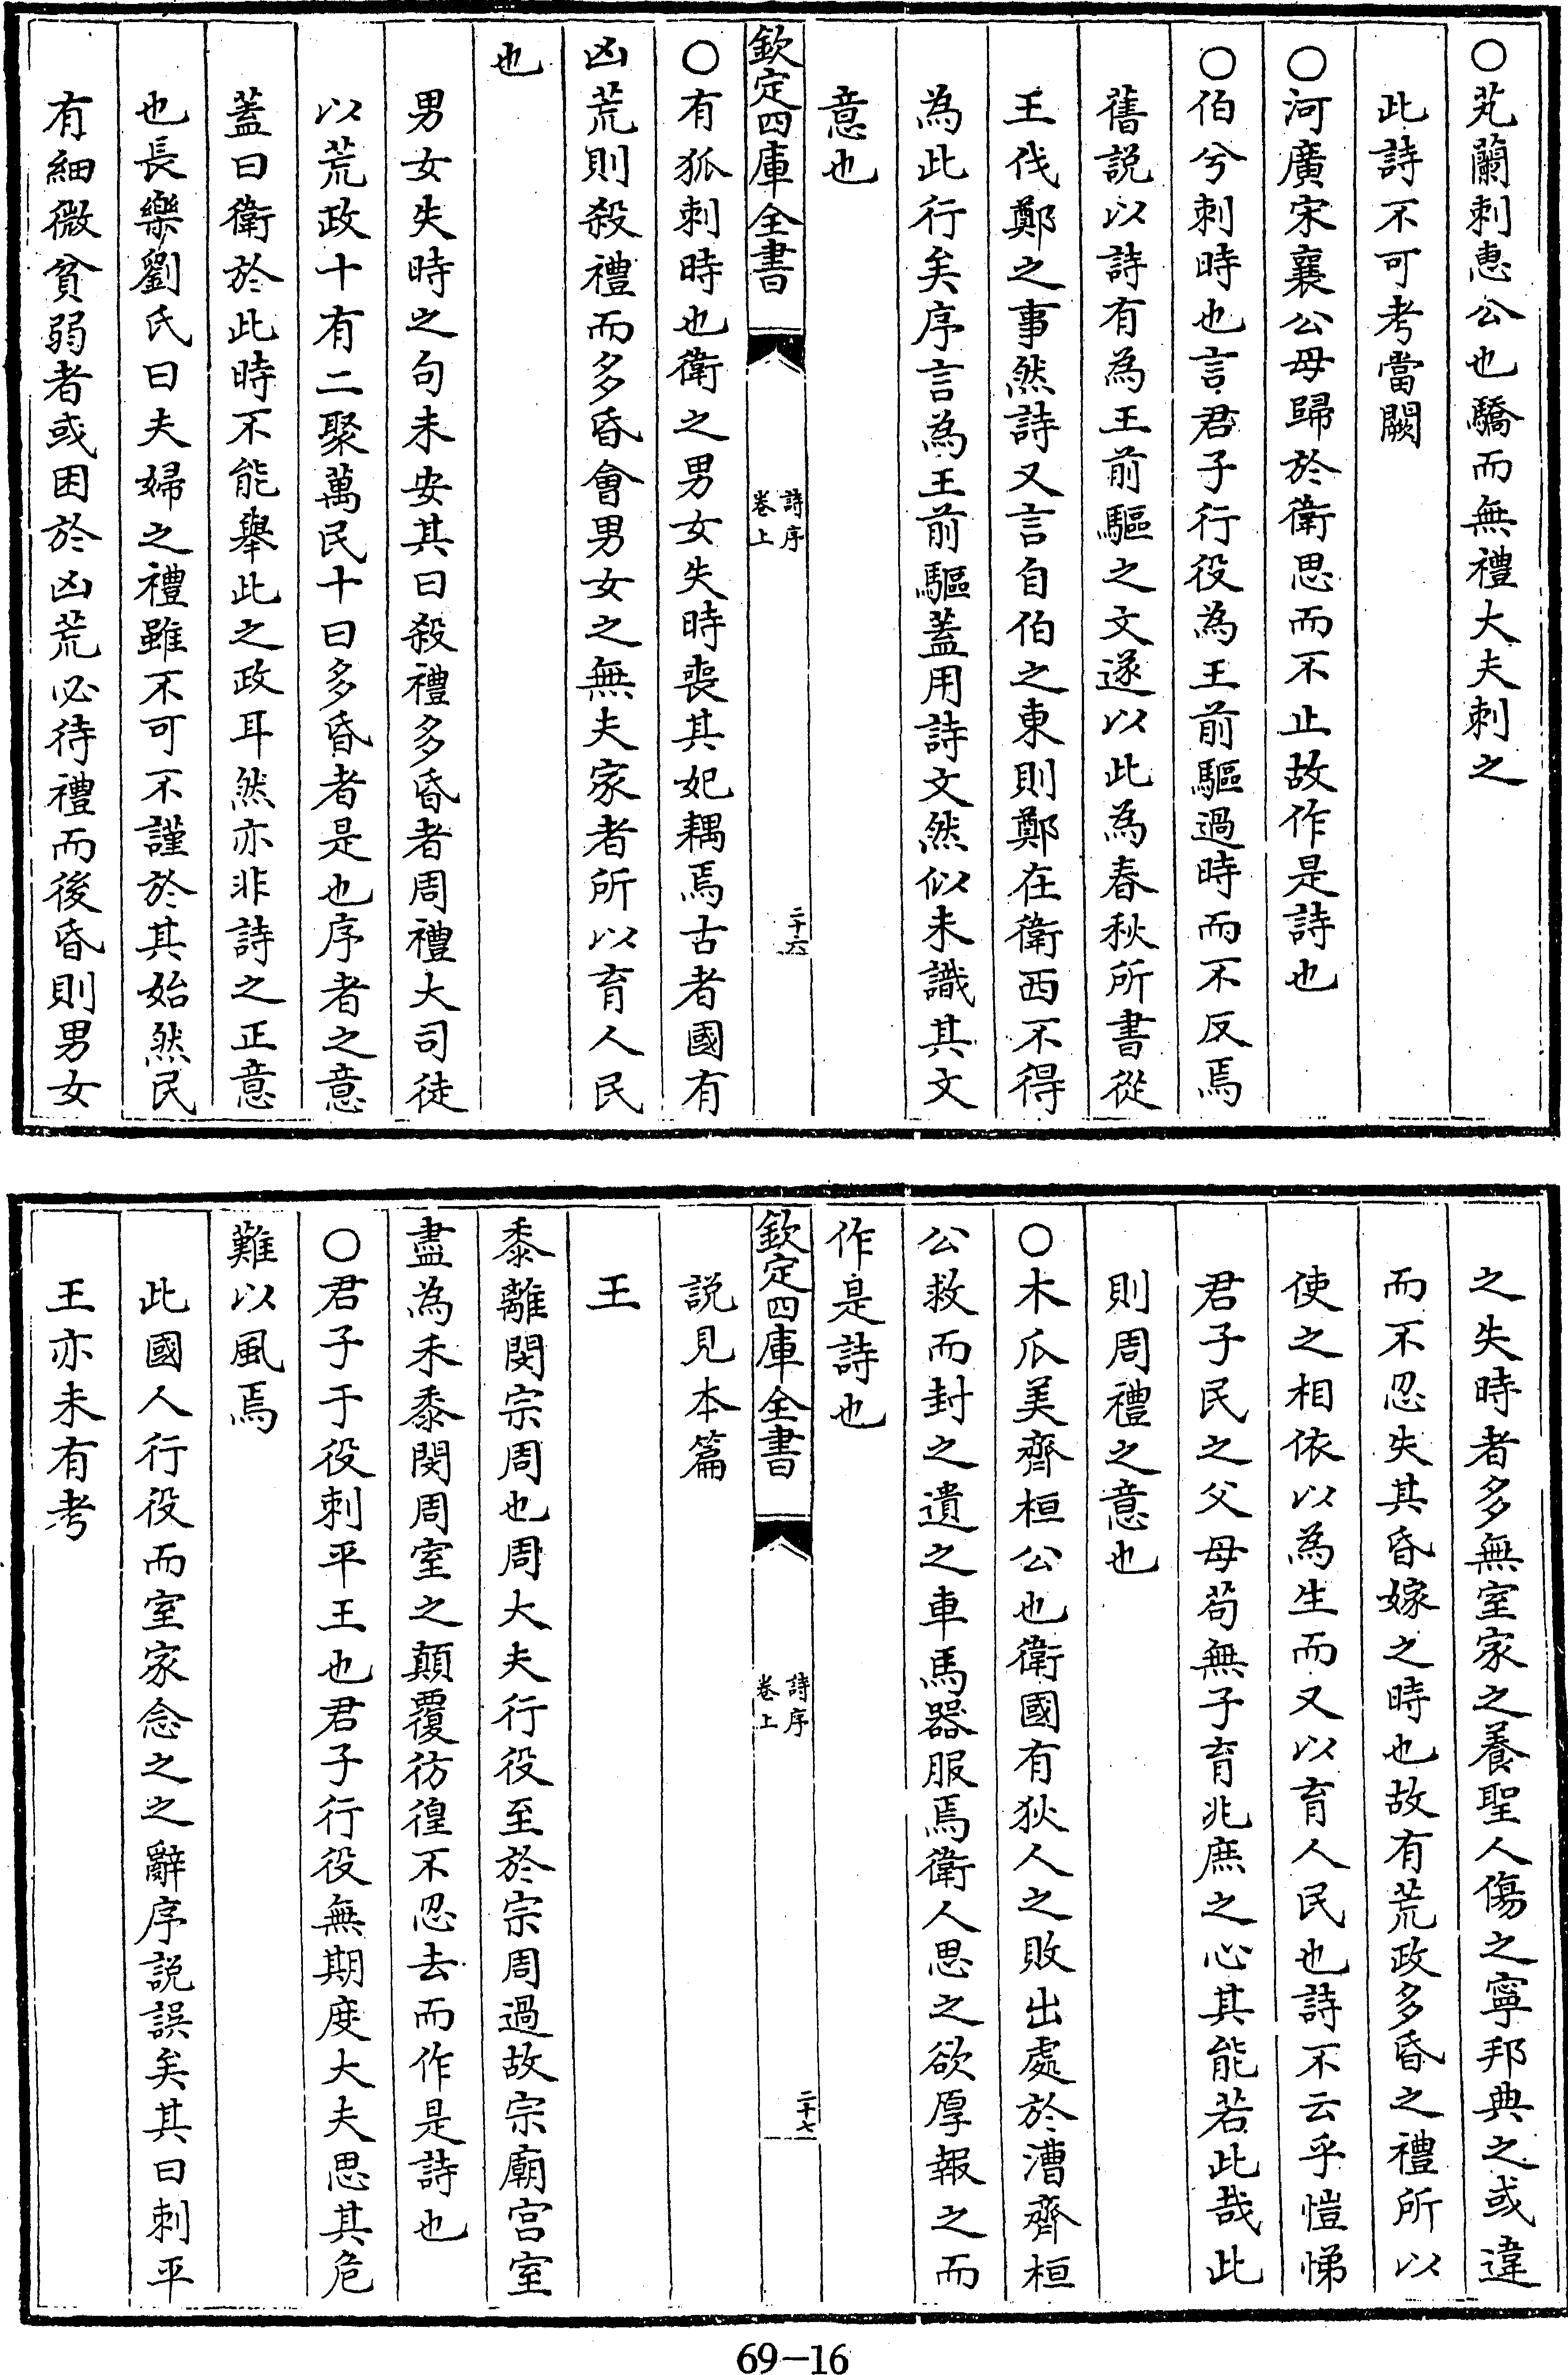 ○芄蘭刺惠公也驕而無禮大夫刺之
此詩不可考當闕
○河廣宋襄公母歸於衛思而不止故作是詩也
○伯兮刺時也言君子行役為王前驅過時而不反焉
舊説以詩有為王前驅之文遂以此為春秋所書從
王伐鄭之事然詩又言自伯之東則鄭在衛西不得
為此行矣序言為王前驅蓋用詩文然似未識其文
意也
欽定四庫全書
詩序
卷上
二十六
○有狐刺時也衛之男女失時喪其妃耦焉古者國有
凶荒則殺禮而多昏會男女之無夫家者所以育人民
也
男女失時之句未安其曰殺禮多昏者周禮大司徒
以荒政十有二聚萬民十曰多昏者是也序者之意
蓋曰衛於此時不能舉此之政耳然亦非詩之正意
也長樂劉氏曰夫婦之禮雖不可不謹於其始然民
有細微貧弱者或困於凶荒必待禮而後昏則男女
之失時者多無室家之養聖人傷之寧邦典之或違
而不忍失其昏嫁之時也故有荒政多昏之禮所以
使之相依以為生而又以育人民也詩不云乎愷悌
君子民之父母苟無子育兆庶之心其能若此哉此
則周禮之意也
○木瓜美齊桓公也衛國有狄人之敗出處於漕齊桓
公救而封之遺之車馬器服焉衛人思之欲厚報之而
作是詩也
欽定四庫全書
詩序
卷上
二十七
説見本篇
王
黍離閔宗周也周大夫行役至於宗周過故宗廟宫室
盡為禾黍閔周室之顛覆彷徨不忍去而作是詩也
○君子于役刺平王也君子行役無期度大夫思其危
難以風焉
此國人行役而室家念之之辭序説誤矣其曰刺平
王亦未有考
69-16